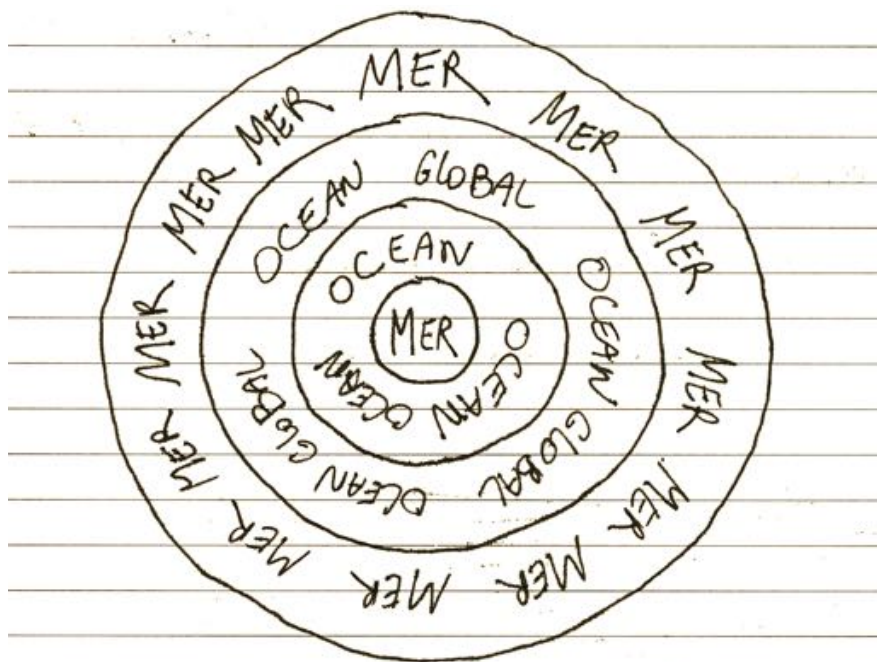 MER MER MER MER MER MER MER MER MER MER MER MER
OCEAN GLOBAL OCEAN GLOBAL OCEAN GLOBAL
OCEAN OCEAN OCEAN
MER